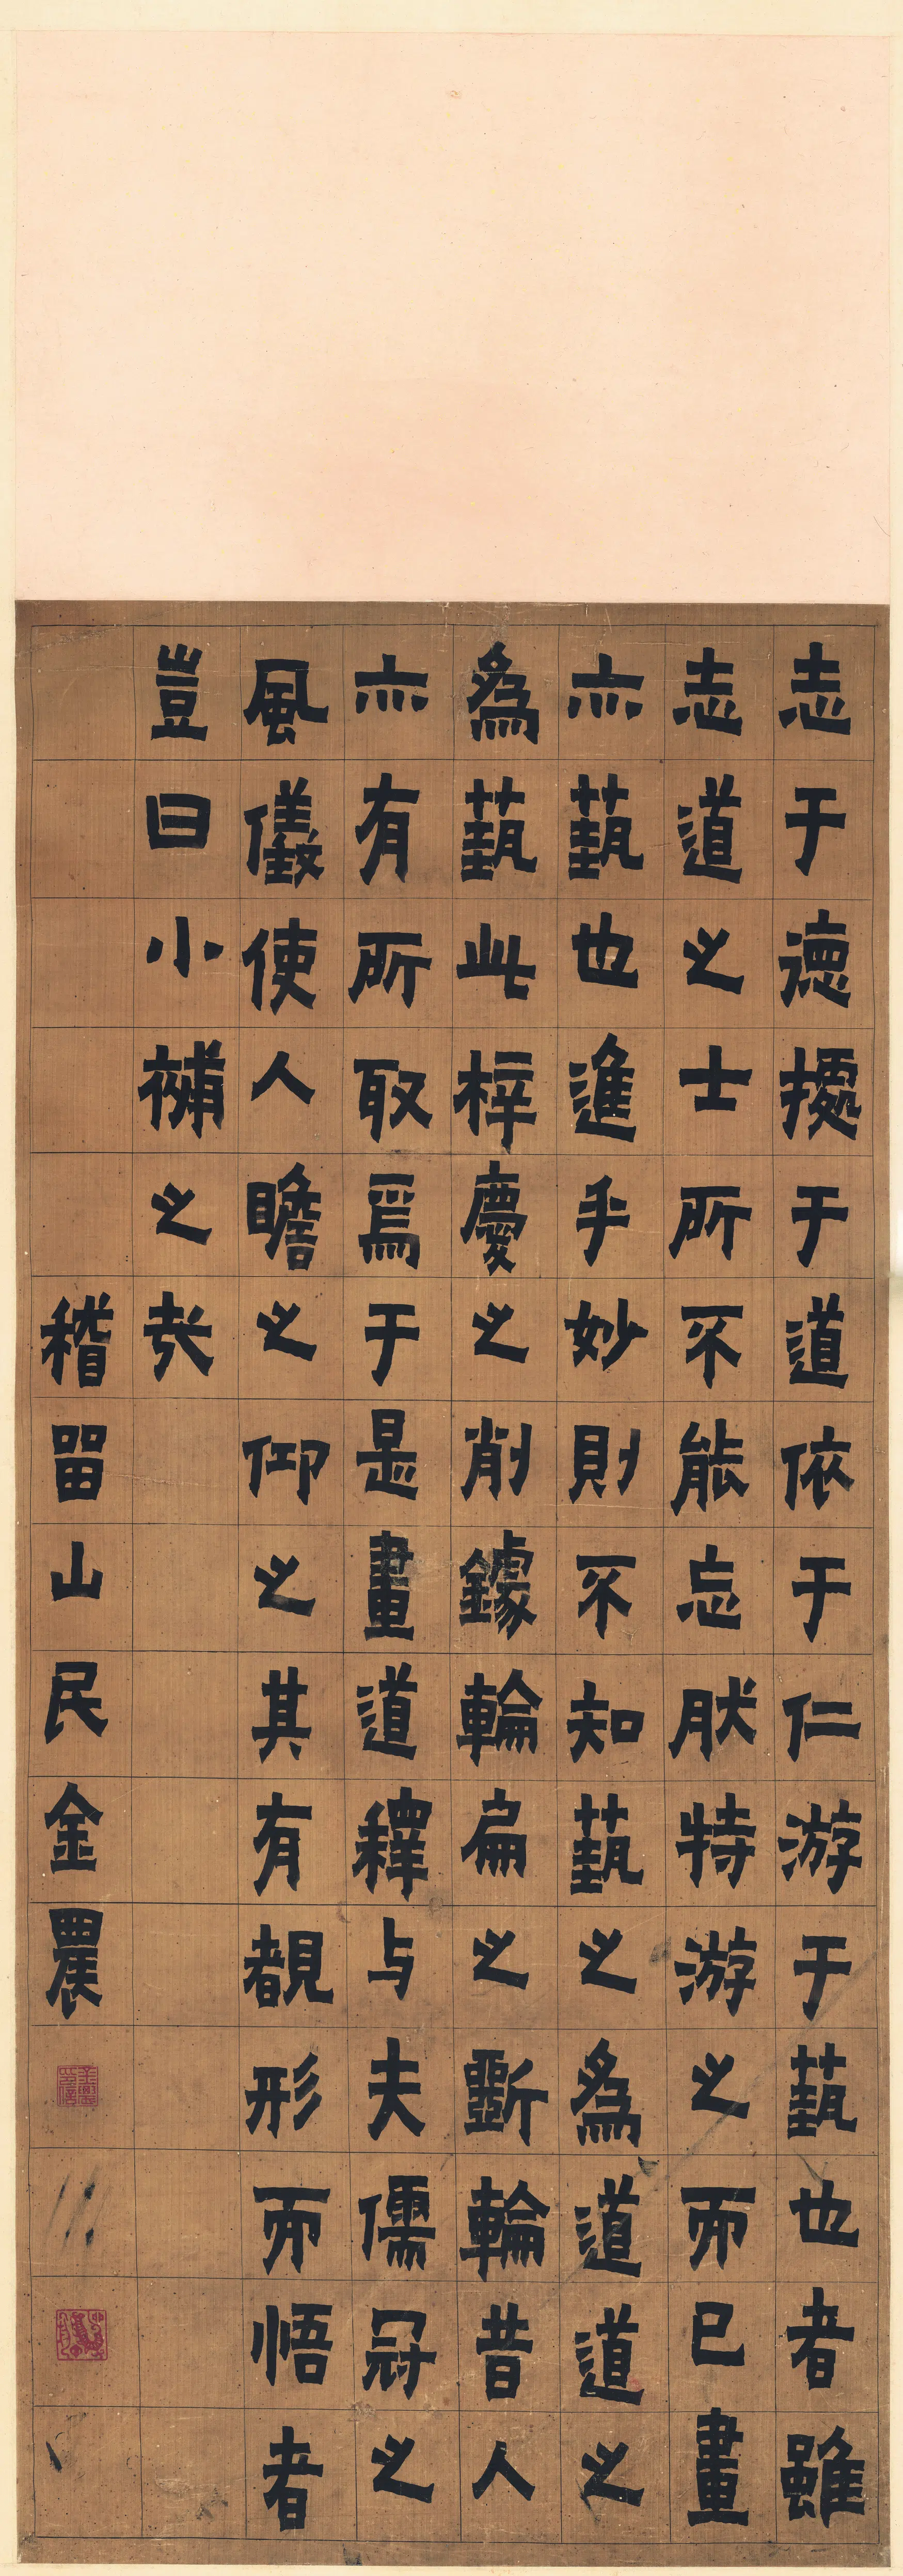 志于德㨿于道依于仁游于蓺也者雖
志道之士所不能忘肰特游之而已畫
亦蓺也進乎妙則不知蓺之為道道之
為蓺此梓慶之削鐻輪扁之斲輪昔人
亦有所取焉于是畫道釋与夫儒冠之
風儀使人瞻之仰之其有覩形而悟者
豈曰小補之哉
稽留山民金農
金農印信